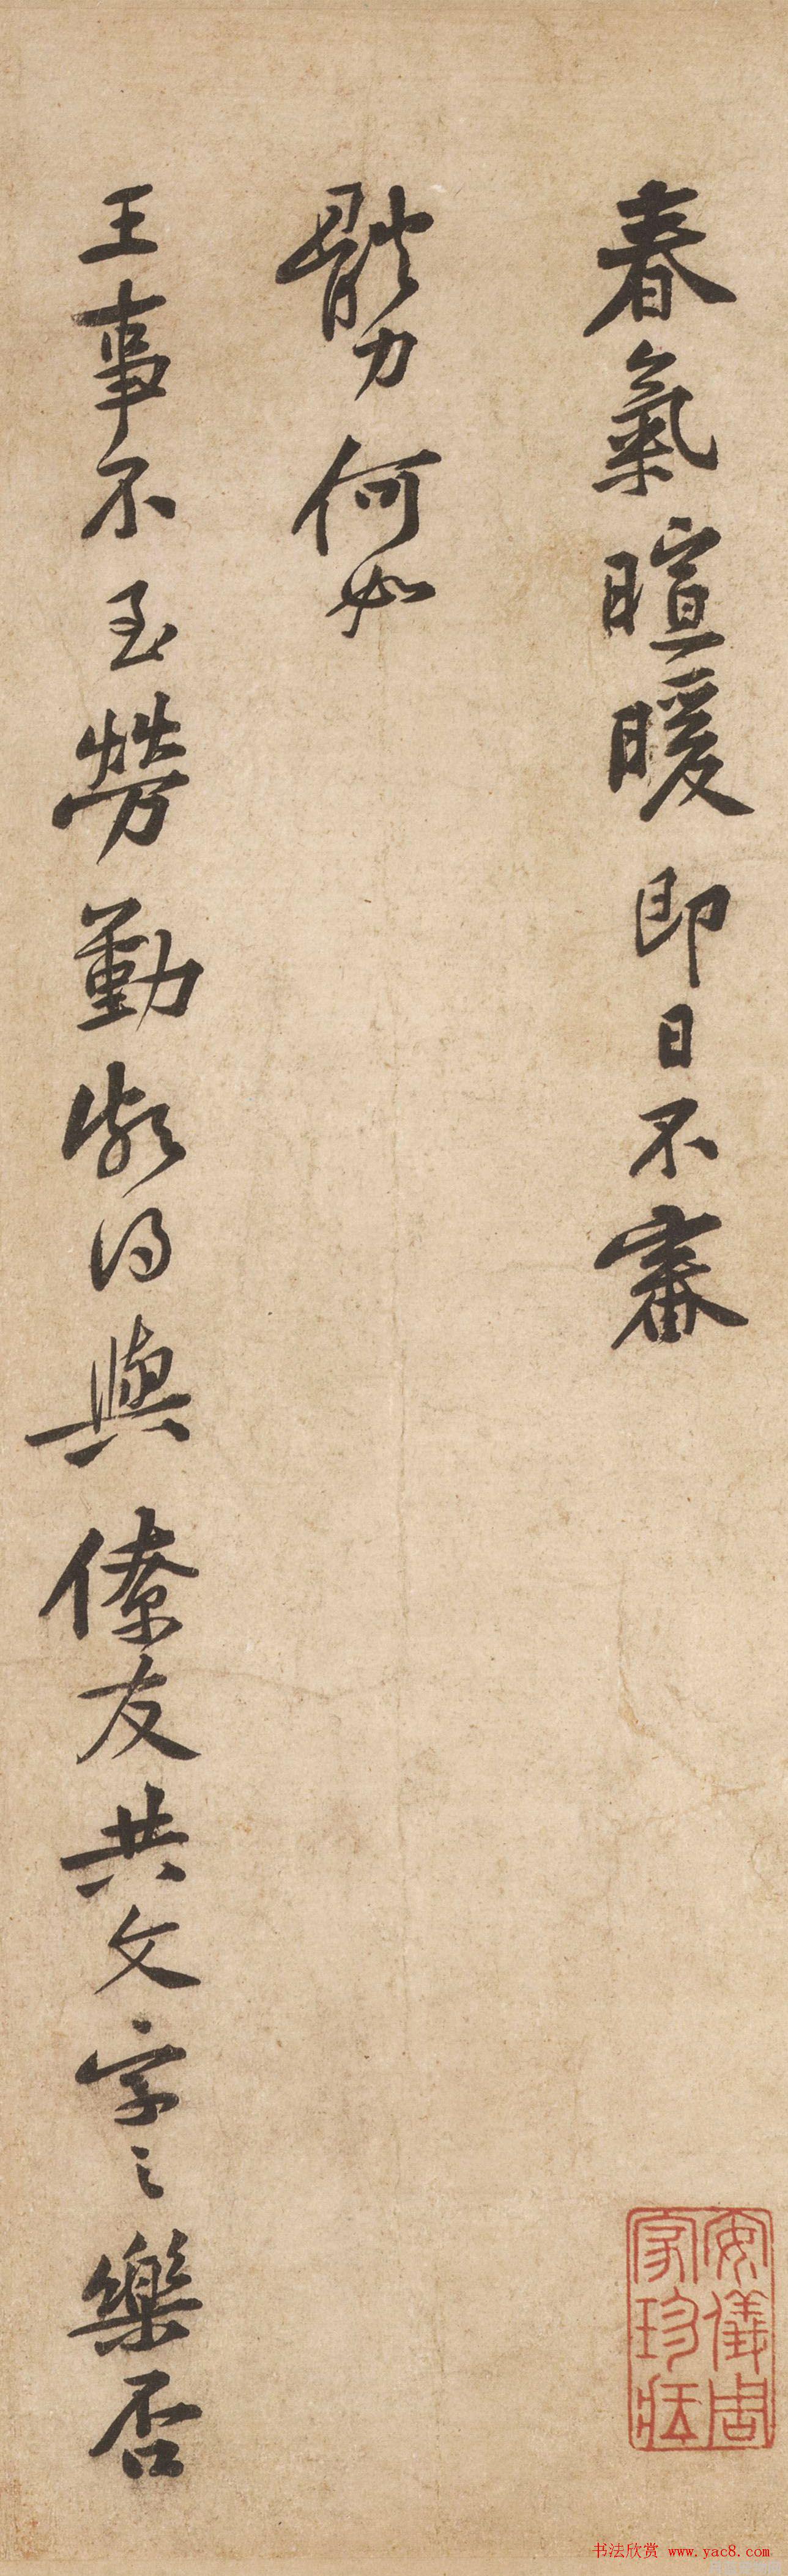 春氣暄暖即日不審
體力何如
王事不至勞勤頗得與僚友共文字之樂否
安儀周家珍藏
书法欣赏 www.yac8.com